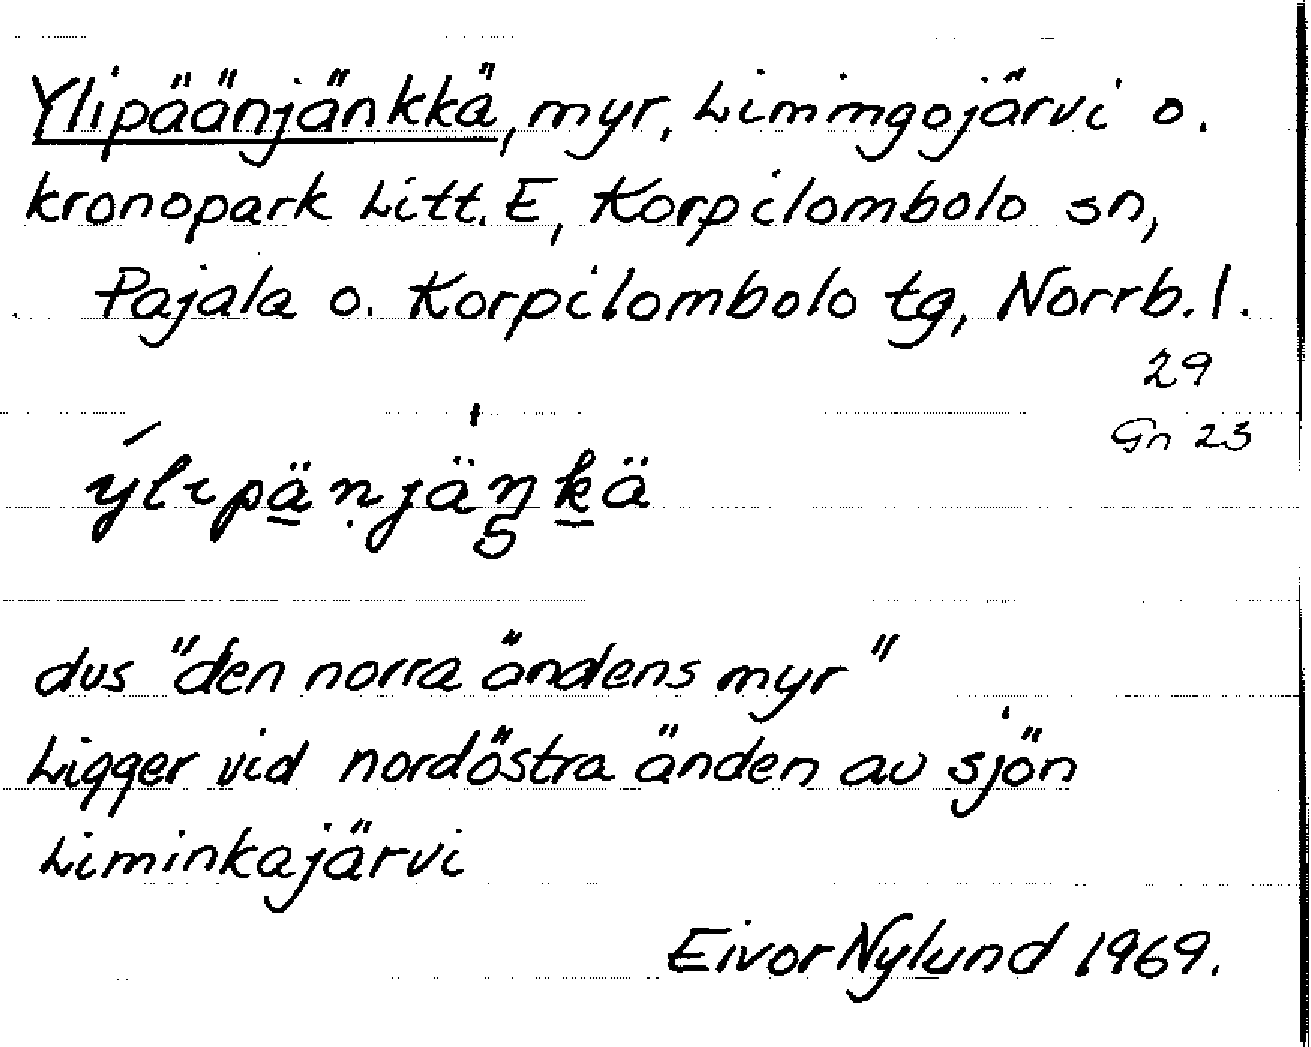 Ylipäänjänkkä, myr, Limmgojärvi o.
kronopark Litt. E, Korpilombolo sn,
Pajala o. Korpilombolo tg, Norrb. l.
29
Gn 23
ylipänjäŋkä
dus "den norra ändens myr"
Ligger vid nordöstra änden av sjön
Liminkajärvi
Eivor Nylund 1969.